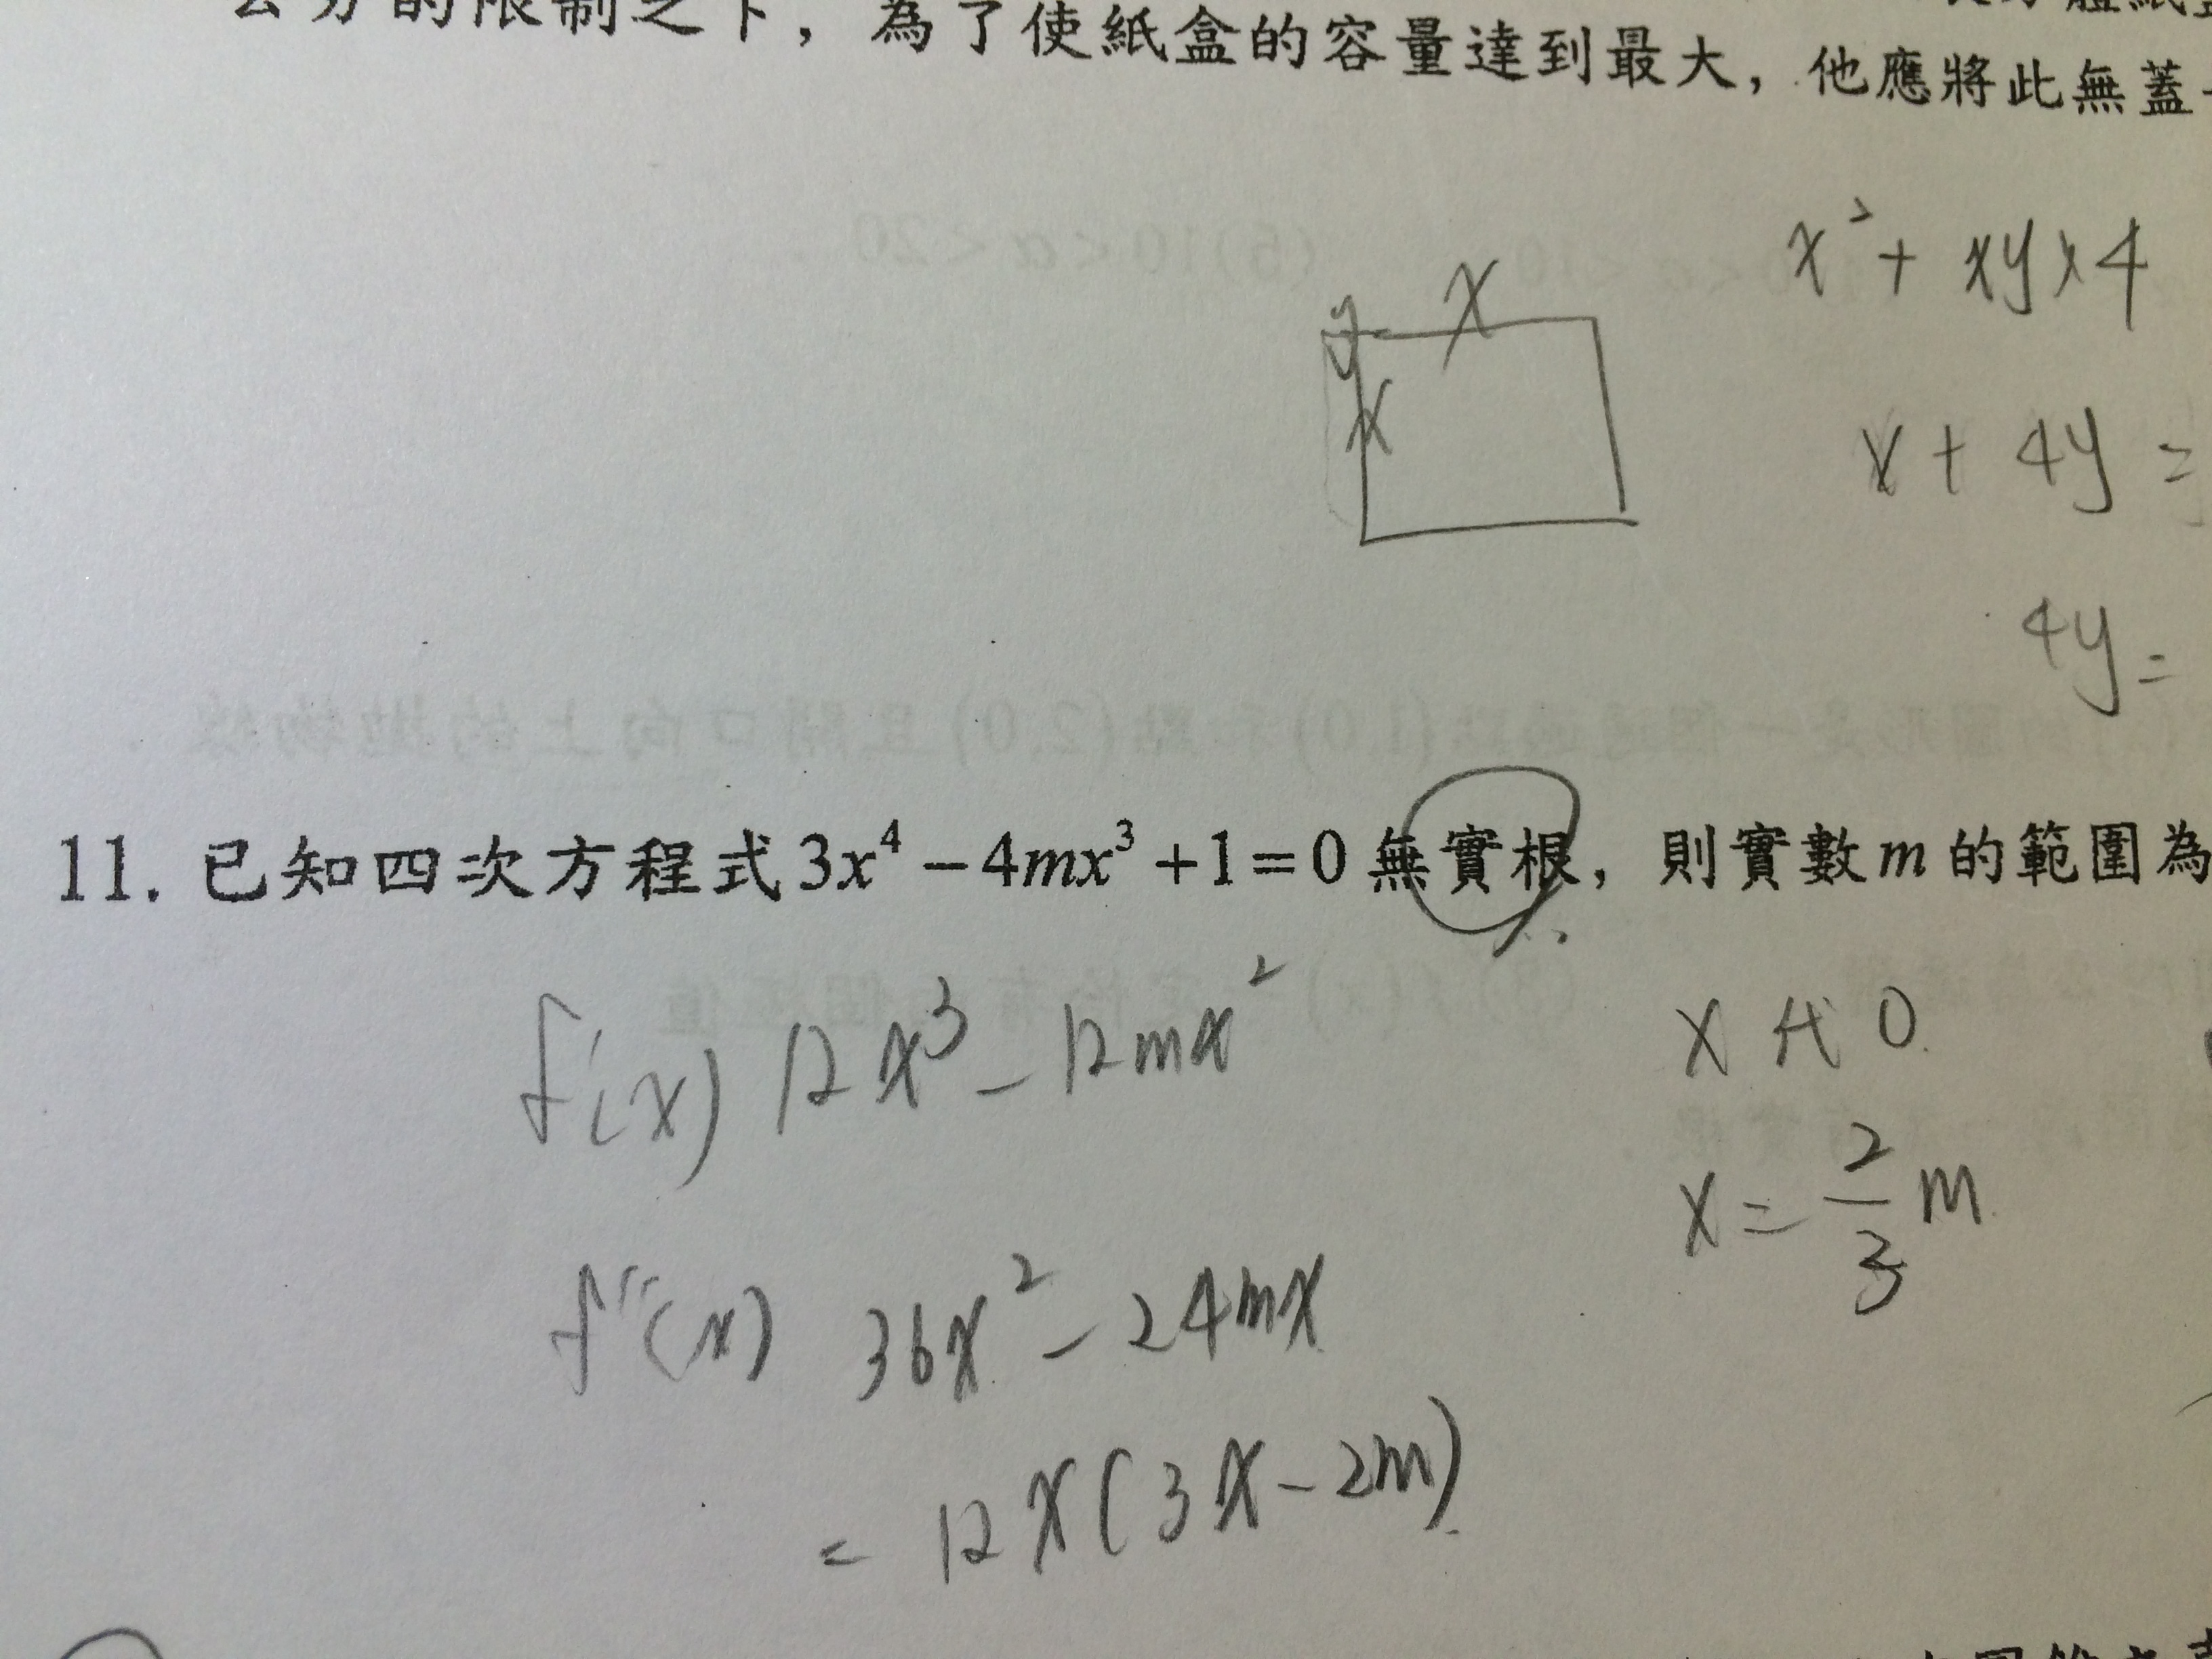 公分的限制之下，為了使紙盒的容量達到最大，他應將此無蓋
x² + xy×4
x
y
x
x + 4y =
4y =
11. 已知四次方程式 3x⁴ − 4mx³ + 1 = 0 無實根，則實數 m 的範圍為
f'(x) 12x³ − 12mx²
x 代 0
x = 2/3 m
f''(x) 36x² − 24mx
= 12x(3x − 2m)